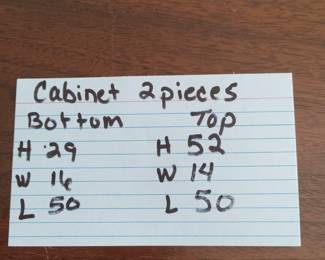 Cabinet 2 pieces
Bottom Top
H 29 H 52
W 16 W 14
L 50 L 50